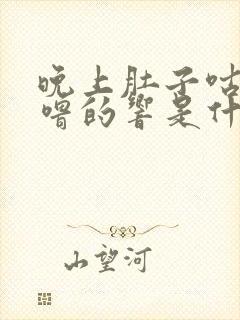 晚上肚子咕
噜的响是什
山望河